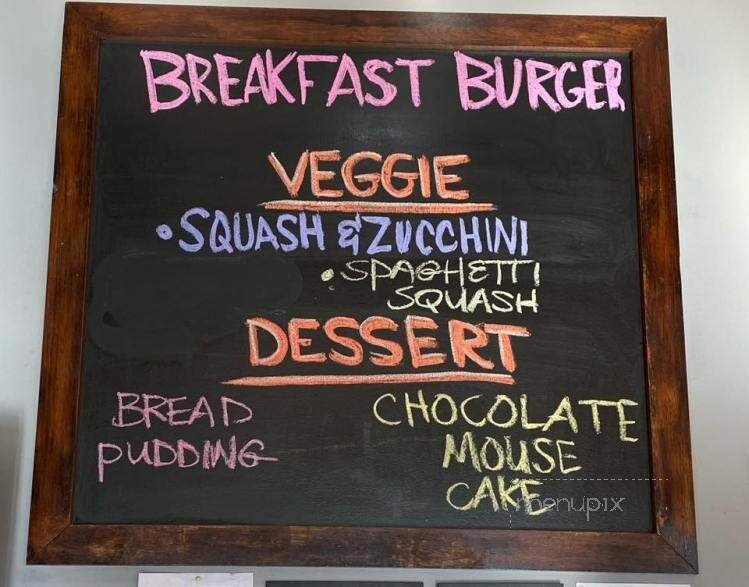 BREAKFAST BURGER
VEGGIE
• SQUASH & ZUCCHINI
• SPAGHETTI
SQUASH
DESSERT
BREAD
PUDDING
CHOCOLATE
MOUSE
CAKE
menupix